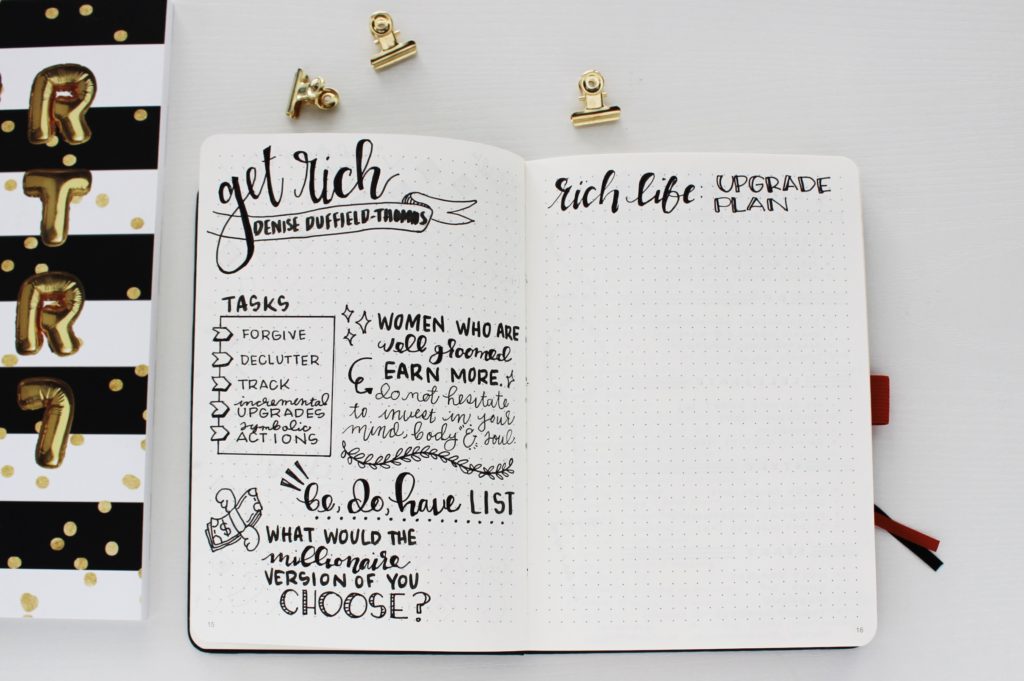 R
T
R
7
get rich
DENISE DUFFIELD-THOMAS
TASKS
FORGIVE
DECLUTTER
TRACK
incremental
UPGRADES
symbolic
ACTIONS
WOMEN WHO ARE
well groomed
EARN MORE.
do not hesitate
to invest in your
mind, body & soul.
be, do, have LIST
$
WHAT WOULD THE
millionaire
VERSION OF YOU
CHOOSE?
15
rich life: UPGRADE
PLAN
16